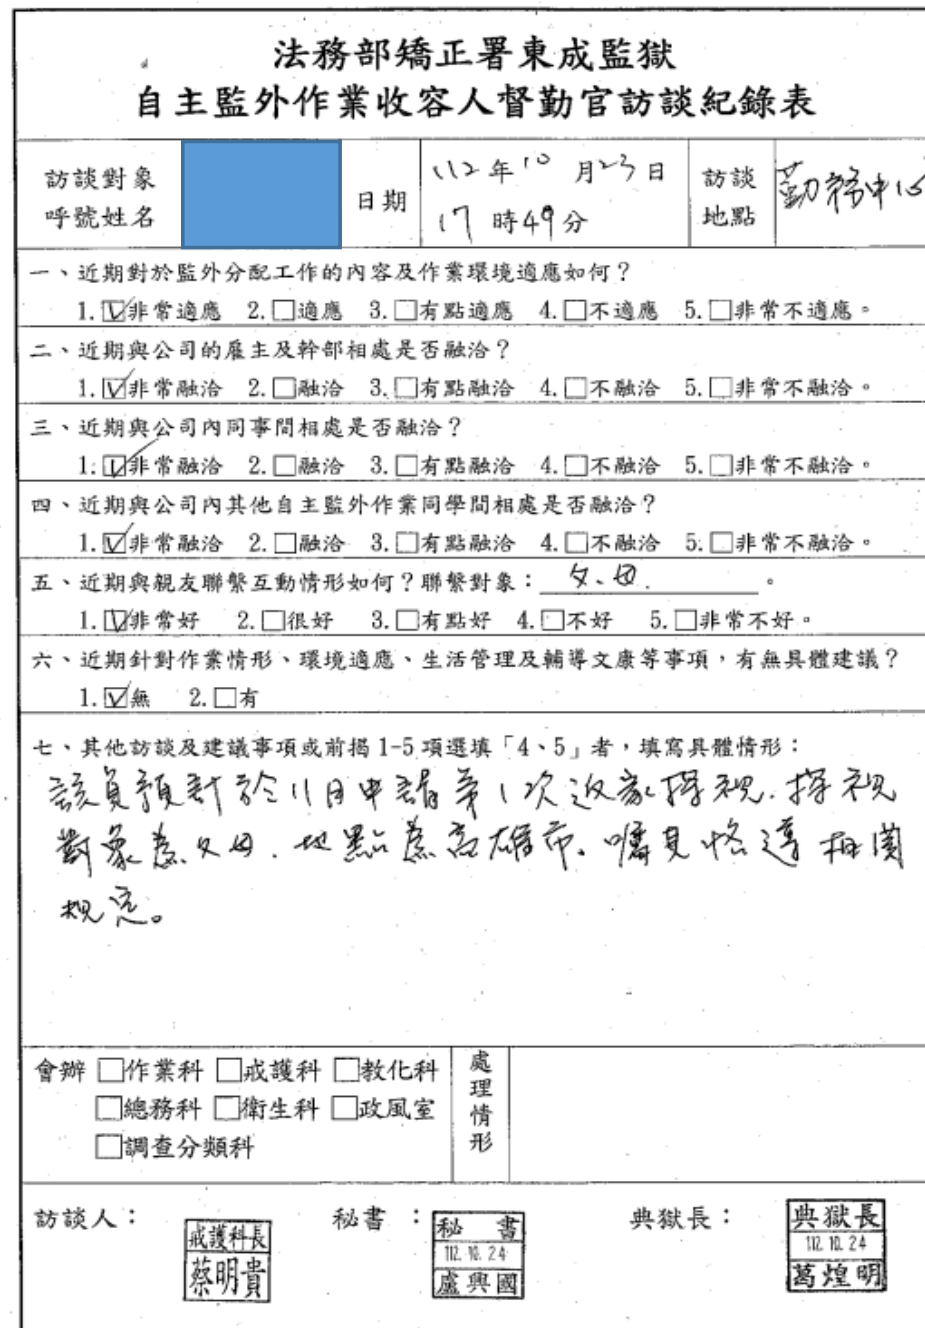 法務部矯正署東成監獄
自主監外作業收容人督勤官訪談紀錄表
訪談對象
呼號姓名
日期
112年10月23日
17時49分
訪談
地點
勤務中心
一、近期對於監外分配工作的內容及作業環境適應如何？
1.☑非常適應 2.□適應 3.□有點適應 4.□不適應 5.□非常不適應。
二、近期與公司的雇主及幹部相處是否融洽？
1.☑非常融洽 2.□融洽 3.□有點融洽 4.□不融洽 5.□非常不融洽。
三、近期與公司內同事間相處是否融洽？
1.☑非常融洽 2.□融洽 3.□有點融洽 4.□不融洽 5.□非常不融洽。
四、近期與公司內其他自主監外作業同學間相處是否融洽？
1.☑非常融洽 2.□融洽 3.□有點融洽 4.□不融洽 5.□非常不融洽。
五、近期與親友聯繫互動情形如何？聯繫對象：父、母.。
1.☑非常好 2.□很好 3.□有點好 4.□不好 5.□非常不好。
六、近期針對作業情形、環境適應、生活管理及輔導文康等事項，有無具體建議？
1.☑無 2.□有
七、其他訪談及建議事項或前揭1-5項選填「4、5」者，填寫具體情形：
該員預計於11月申請第1次返家探視.探視
對象為父母.地點為高雄市.囑其恪遵相關
規定。
會辦 □作業科 □戒護科 □教化科
□總務科 □衛生科 □政風室
□調查分類科
處理情形
訪談人：
戒護科長
蔡明貴
秘書：
秘書
112.10.24
盧興國
典獄長：
典獄長
112.10.24
葛煌明